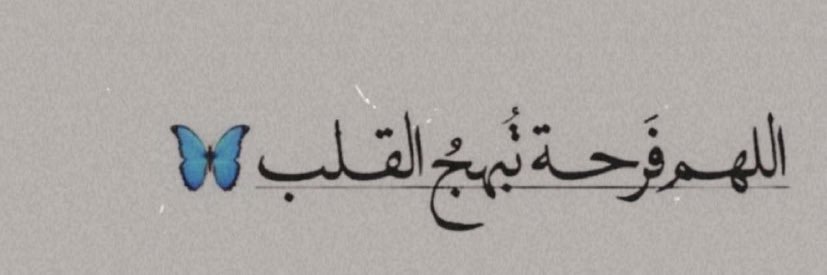 اللهم فَرحة تُبهجُ القلب 🦋